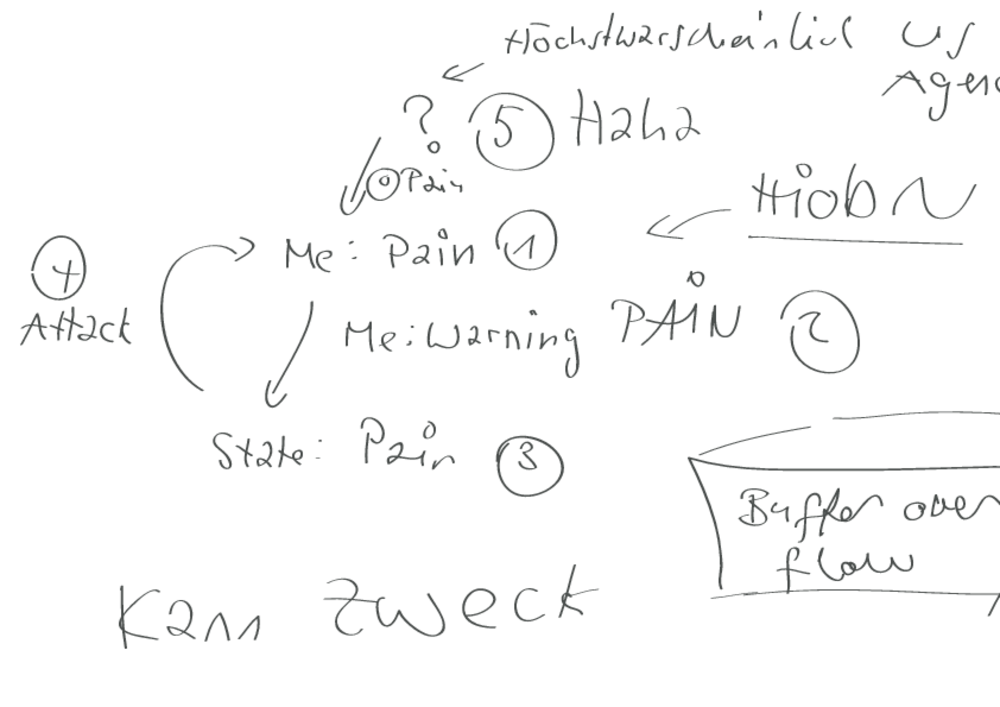 Höchstwarscheinlich US
Agen
? 5 Haha
0 Pain
HiobN
Me: Pain 1
4
Attack
Me: Warning PAIN 2
State: Pain 3
Buffer over
flow
Kann Zweck